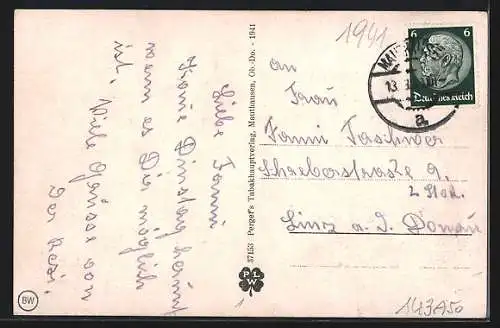 Liebe Fanni
Komme Dinstag herunt
wenn es Dir möglich
ist.
Viele Grüsse von
Der Resi.
37153 Perger's Tabakhauptverlag, Mauthausen, Ob.-Do. - 1941
P L W
BW
1941
6 6
Deutsches Reich
13.
a
An
Frau
Fanni Taschner
Schreberstrasse 9.
2 Stok.
Linz a. d. Donau
1143A50